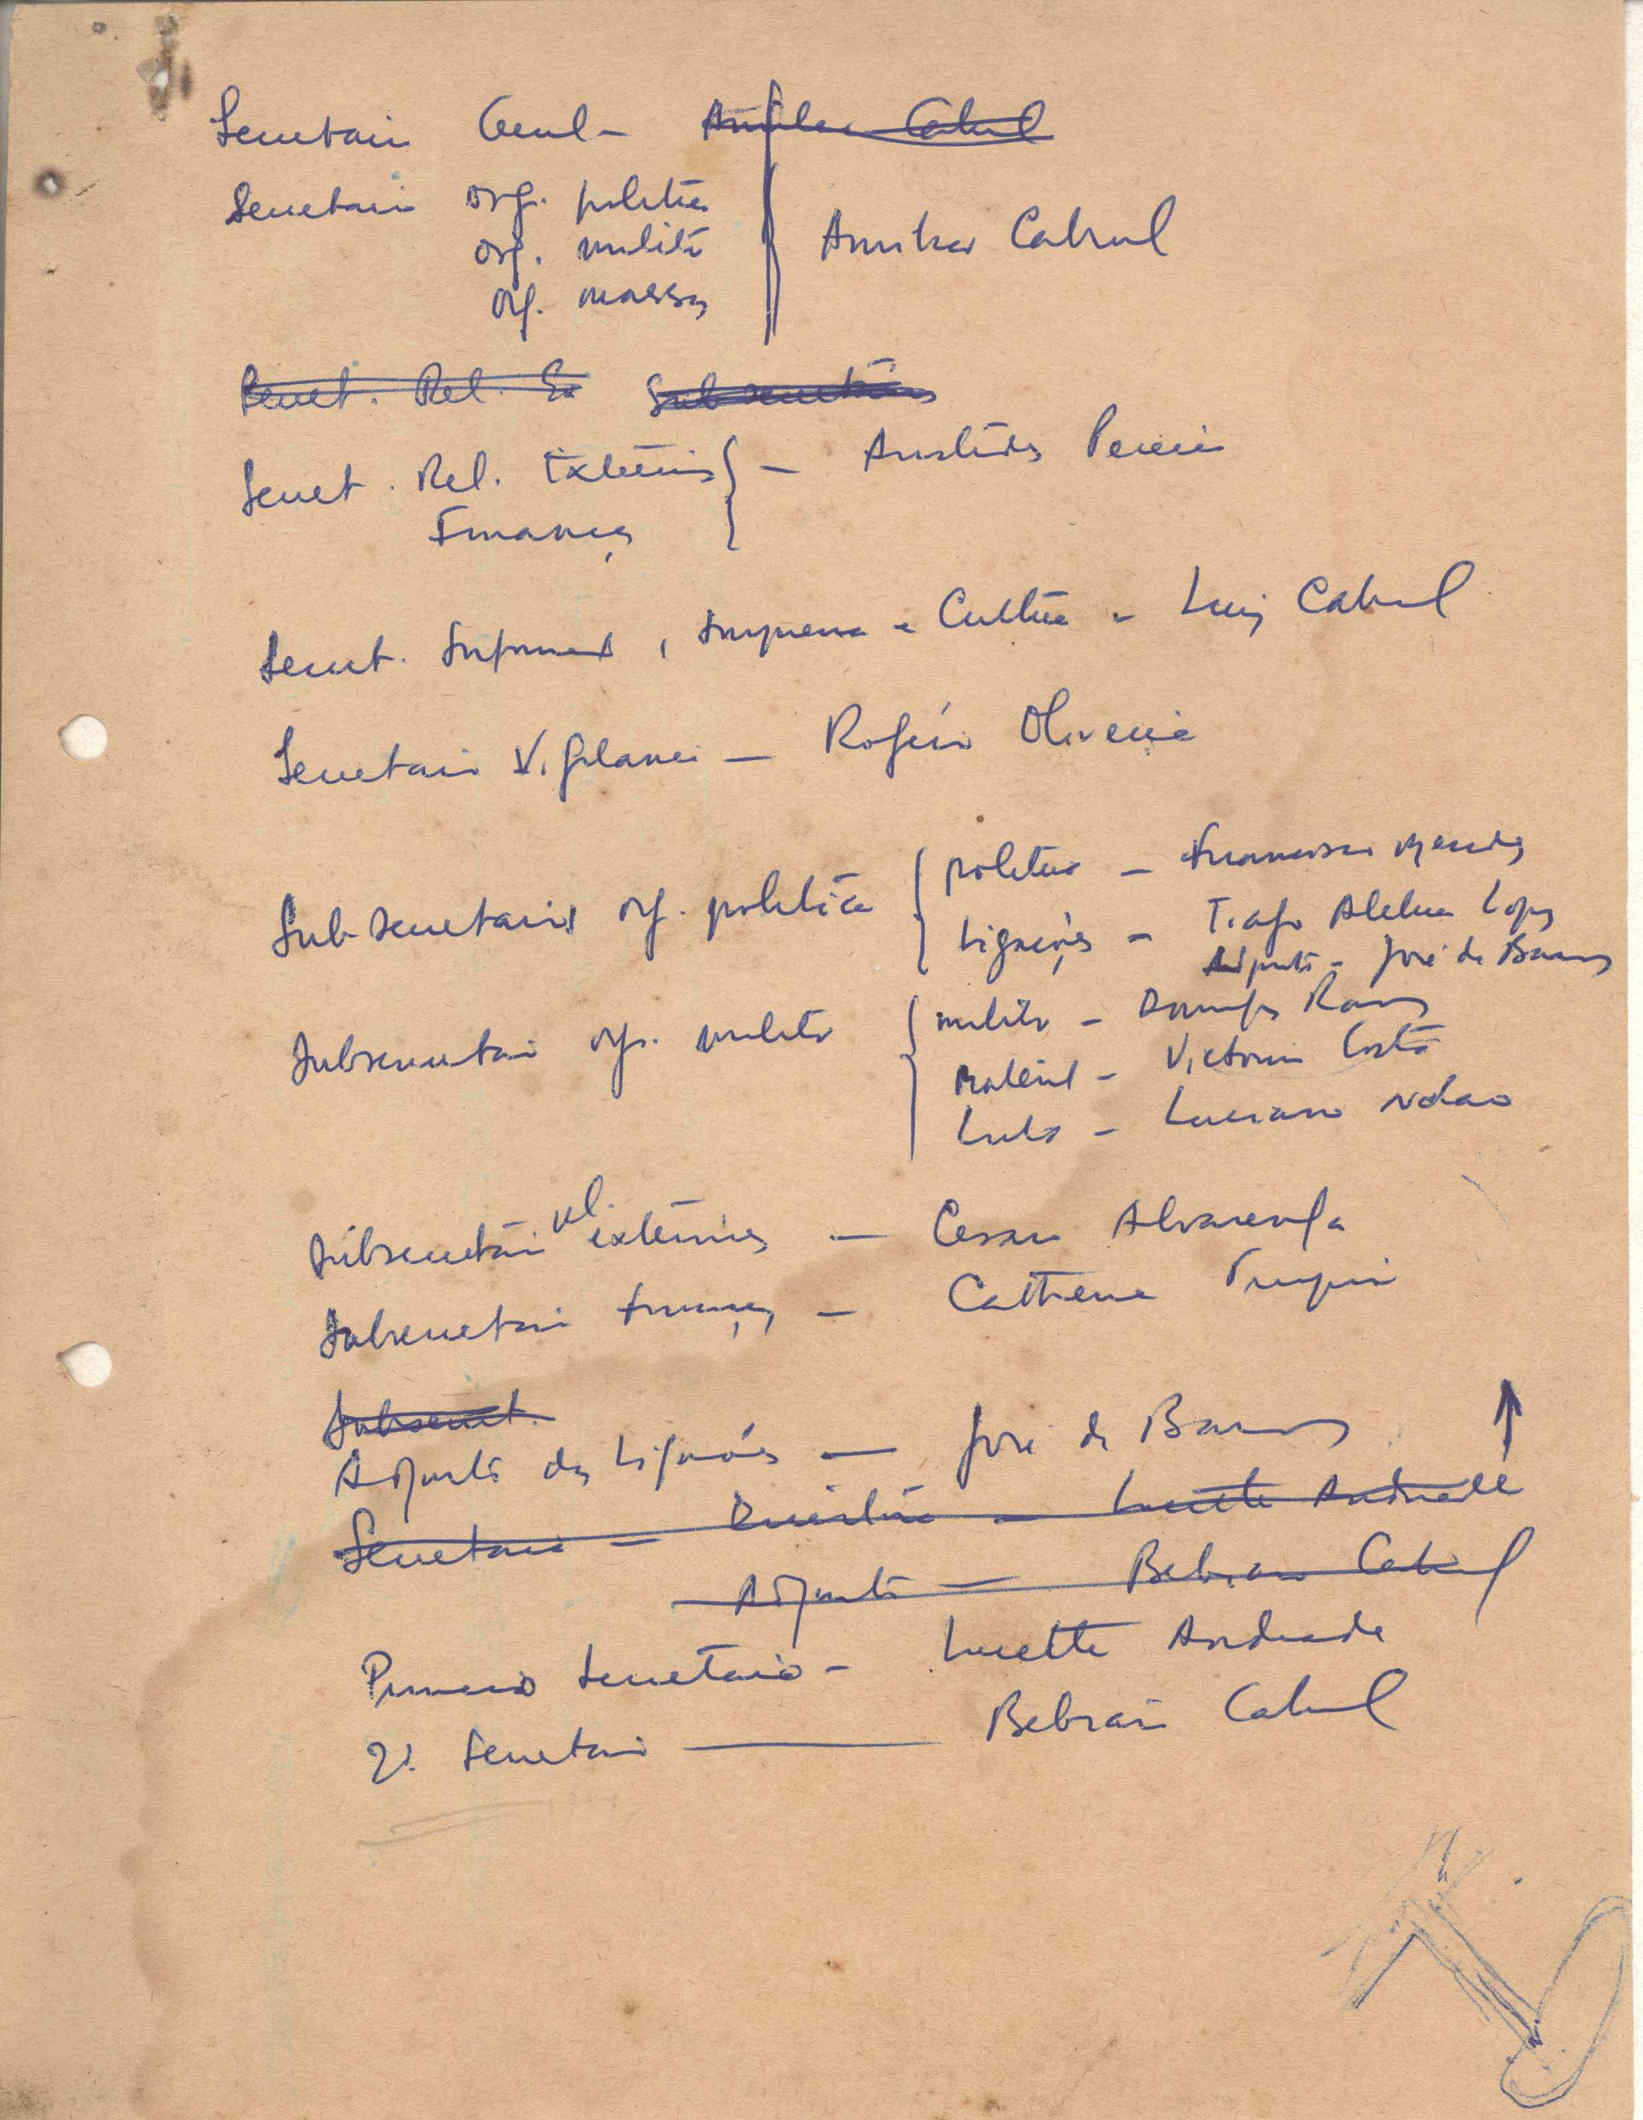 Secretário Geral - Amílcar Cabral
Secretário org. política
org. milit.
org. massas
Amílcar Cabral
Secret. Rel. Ex Subsecretários
Secret. Rel. Exteriores - Aristides Pereira
Finanças
Secret. Informaç, Imprensa e Cultura - Luiz Cabral
Secretário Vigilancia - Rogério Oliveira
Sub-secretários org. política política - Francisco Mendes
Ligações - Tiago Aleluia Lopes
Adjunto - José de Barros
Subsecretário org. milit. milit. - Domingos Ramos
Material - Victorino Costa
Luta - Luciano Ndao
Subsecretário rel. exteriores - Cesar Alvarenga
Subsecretário Finanças - Catherine
Subsecret.
Adjunto das Ligações - José de Barros
Secretária - - Lucette Andrade
Adjunto - Bebiano Cabral
Primeiro Secretário - Lucette Andrade
2º. Secretário - Bebiano Cabral